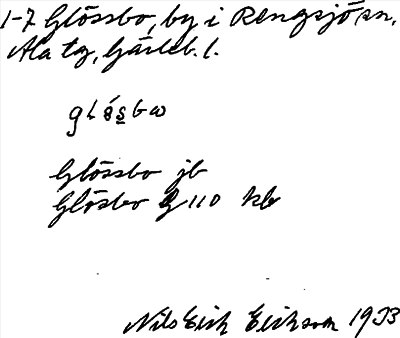 1-7 Glössbo, by i Rengsjö sn,
Ala tg, Gävleb. l.
glǿsbω
Glössbo jb
Glösbo G110 kb
Nils Erik Erikson 1933